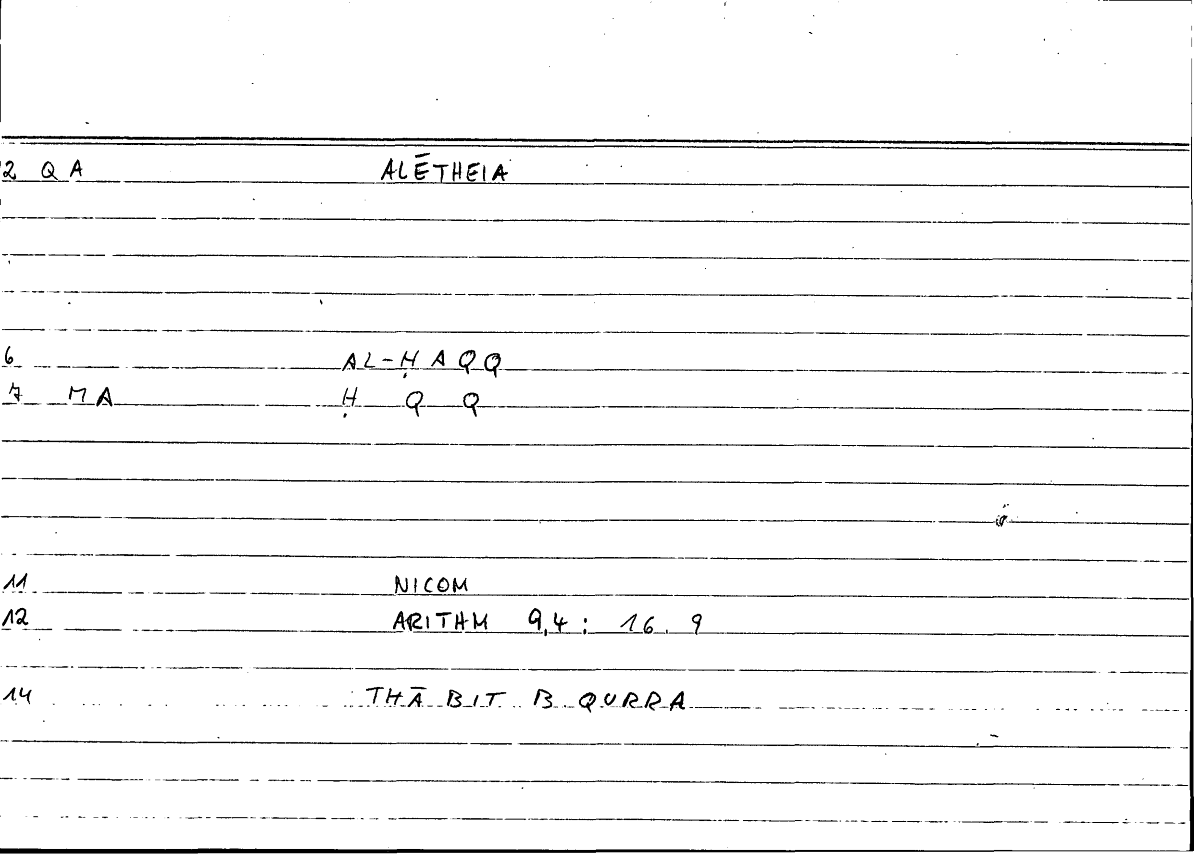 2 Q A ALĒTHEIA
6 AL-ḤAQQ
7 MA Ḥ Q Q
11 NICOM
12 ARITHM 9,4 : 16.9
14 THĀBIT B QURRA